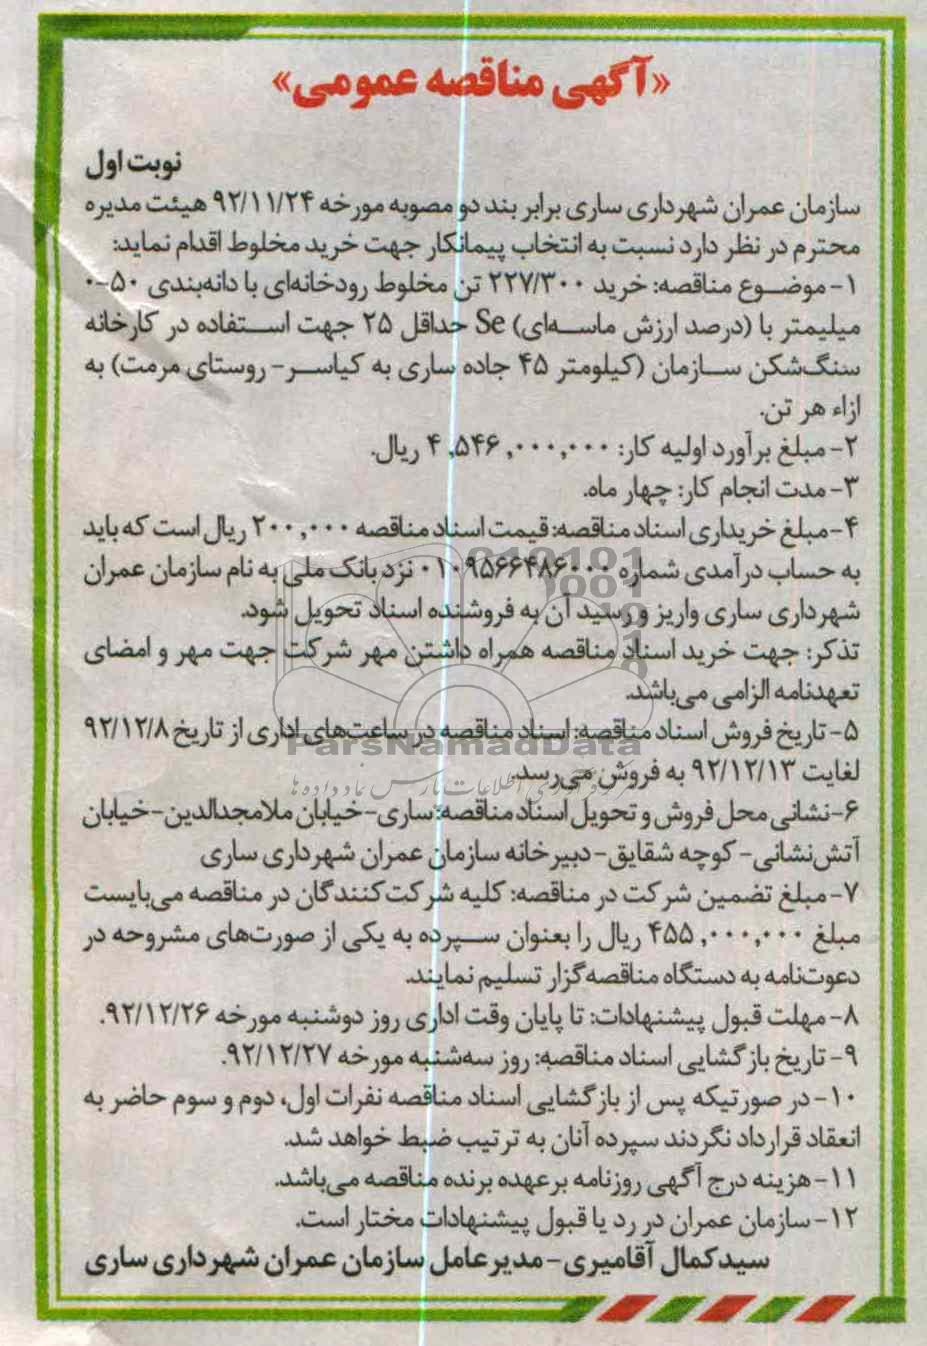 «آگهی مناقصه عمومی»
نوبت اول
سازمان عمران شهرداری ساری برابر بند دو مصوبه مورخه ۹۲/۱۱/۲۴ هیئت مدیره
محترم در نظر دارد نسبت به انتخاب پیمانکار جهت خرید مخلوط اقدام نماید:
۱- موضوع مناقصه: خرید ۲۲۷/۳۰۰ تن مخلوط رودخانه‌ای با دانه‌بندی ۵۰-۰
میلیمتر با (درصد ارزش ماسه‌ای) Se حداقل ۲۵ جهت استفاده در کارخانه
سنگ‌شکن سازمان (کیلومتر ۴۵ جاده ساری به کیاسر- روستای مرمت) به
ازاء هر تن.
۲- مبلغ برآورد اولیه کار: ۴,۵۴۶,۰۰۰,۰۰۰ ریال.
۳- مدت انجام کار: چهار ماه.
۴- مبلغ خریداری اسناد مناقصه: قیمت اسناد مناقصه ۲۰۰,۰۰۰ ریال است که باید
به حساب درآمدی شماره ۰۱۰۹۵۶۶۴۸۶۰۰۰ نزد بانک ملی به نام سازمان عمران
شهرداری ساری واریز و رسید آن به فروشنده اسناد تحویل شود.
تذکر: جهت خرید اسناد مناقصه همراه داشتن مهر شرکت جهت مهر و امضای
تعهدنامه الزامی می‌باشد.
۵- تاریخ فروش اسناد مناقصه: اسناد مناقصه در ساعت‌های اداری از تاریخ ۹۲/۱۲/۸
ParsNamadData
لغایت ۹۲/۱۲/۱۳ به فروش می‌رسد.
۶- نشانی محل فروش و تحویل اسناد مناقصه: ساری- خیابان ملامجدالدین- خیابان
آتش‌نشانی- کوچه شقایق- دبیرخانه سازمان عمران شهرداری ساری
۷- مبلغ تضمین شرکت در مناقصه: کلیه شرکت‌کنندگان در مناقصه می‌بایست
مبلغ ۴۵۵,۰۰۰,۰۰۰ ریال را بعنوان سپرده به یکی از صورت‌های مشروحه در
دعوت‌نامه به دستگاه مناقصه‌گزار تسلیم نمایند.
۸- مهلت قبول پیشنهادات: تا پایان وقت اداری روز دوشنبه مورخه ۹۲/۱۲/۲۶.
۹- تاریخ بازگشایی اسناد مناقصه: روز سه‌شنبه مورخه ۹۲/۱۲/۲۷.
۱۰- در صورتیکه پس از بازگشایی اسناد مناقصه نفرات اول، دوم و سوم حاضر به
انعقاد قرارداد نگردند سپرده آنان به ترتیب ضبط خواهد شد.
۱۱- هزینه درج آگهی روزنامه برعهده برنده مناقصه می‌باشد.
۱۲- سازمان عمران در رد یا قبول پیشنهادات مختار است.
سیدکمال آقامیری- مدیرعامل سازمان عمران شهرداری ساری